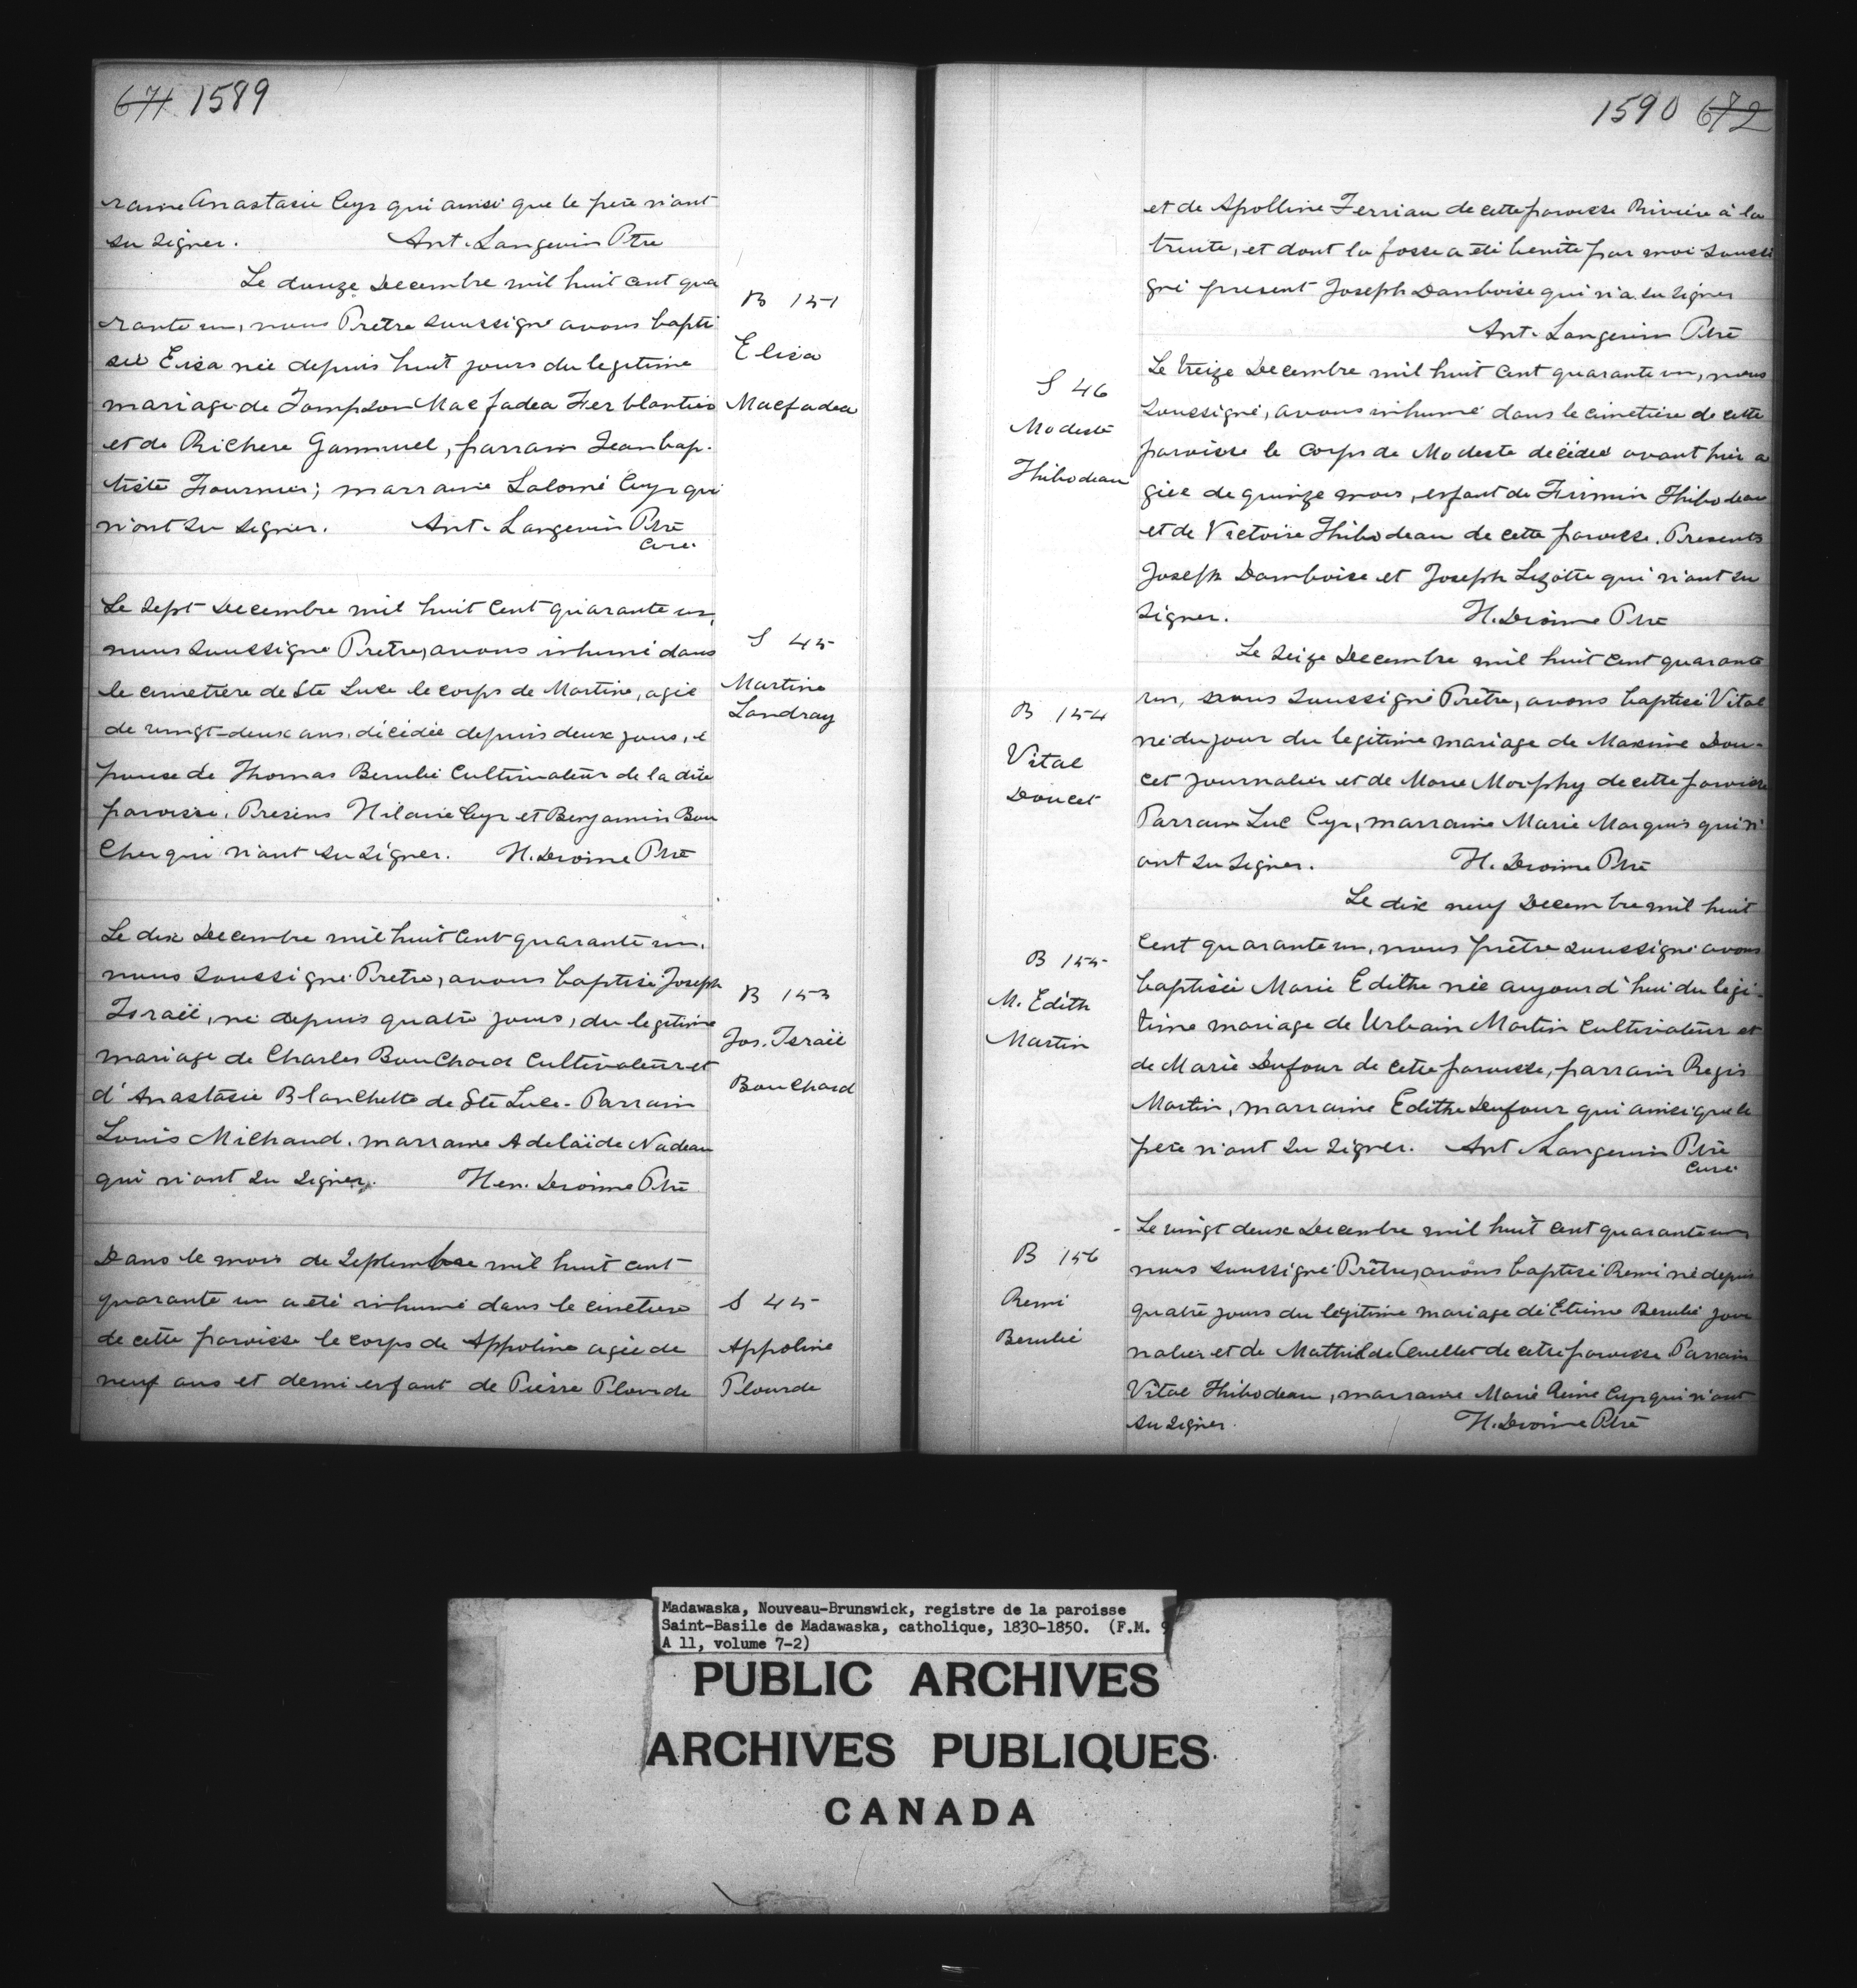 671 1589
raine Anastasie Cyr qui ainsi que le père n'ont
su signer. Ant. Langevin Ptre
Le douze Decembre mil huit cent qua
rante un, nous Prêtre soussigné avons bapti
sée Eisa née depuis huit jours du legitime
mariage de Tompson Macfadea Ferblantier
et de Richere Gammuel, parrain Jean bap.
tiste Fournier; marraine Salomé Cyr qui
n'ont su signer. Ant. Langevin Ptre
Curé.
B 151
Elisa
Macfadea
Le sept Decembre mil huit cent quarante un,
nous soussigné Prêtre, avons inhumé dans
le cimetière de Ste Luce le corps de Martine, agée
de vingt-deux ans, décédée depuis deux jours, é
pouse de Thomas Berubé Cultivateur de la dite
paroisse. Presens Hilarie Cyr et Benjamin Bou
cher qui n'ont su signer. H. Dvoinne Ptre
S 45
Martine
Landray
Le dix Decembre mil huit cent quarante un.
nous soussigné Prêtre, avons baptisé Joseph
Israël, né depuis quatre jours, du legitime
mariage de Charles Bouchard Cultivateur et
d'Anastasie Blanchette de Ste Luce. Parrain
Louis Michaud. marraine Adelaïde Nadeau
qui n'ont su signer. Hen. Dvoinne Ptre
B 153
Jos. Israël
Bouchard
Dans le mois de Septembre mil huit cent
quarante un a été inhumé dans le cimetiere
de cette paroisse le corps de Appoline agée de
neuf ans et demi enfant de Pierre Plourde
S 45
Appoline
Plourde
1590 672
et de Apolline Terriau de cette paroisse Rivière à la
truite, et dont la fosse a été benite par moi soussi
gné present Joseph Damboise qui n'a su signer
Ant. Langevin Ptre
Le treize Decembre mil huit cent quarante un, nous
soussigné, avons inhumé dans le cimetière de cette
paroisse le corps de Modeste décédée avant hier a
gée de quinze mois, enfant de Firmin Thibodeau
et de Victoire Thibodeau de cette paroisse. Presents
Joseph Damboise et Joseph Lizotte qui n'ont su
signer. H. Dvoinne Ptre
S 46
Modeste
Thibodeau
Le seize Decembre mil huit cent quarante
un, nous soussigné Prêtre, avons baptisé Vital
né du jour du legitime mariage de Maxime Dou-
cet journalier et de Marie Morphy de cette paroisse
Parrain Luc Cyr, marraine Marie Marquis qui n'
ont su signer. H. Dvoinne Ptre
B 154
Vital
Doucet
Le dix neuf Decembre mil huit
cent quarante un, nous prêtre soussigné avons
baptisée Marie Edithe née aujourd'hui du legi-
time mariage de Urbain Martin Cultivateur et
de Marie Dufour de cette paroisse, parrain Regis
Martin, marraine Edithe Dufour qui ainsi que le
père n'ont su signer. Ant Langevin Ptre
Curé
B 155
M. Edith
Martin
Le vingt deux Decembre mil huit cent quarante un
nous soussigné Prêtre, avons baptisé Remi né depuis
quatre jours du légitime mariage de Etienne Berubé jour
nalier et de Mathilde Ouellet de cette paroisse Parrain
Vital Thibodeau, marraine Marie Reine Cyr qui n'ont
su signer. H. Dvoinne Ptre
B 156
Remi
Berubé
Madawaska, Nouveau-Brunswick, registre de la paroisse
Saint-Basile de Madawaska, catholique, 1830-1850. (F.M. 9
A 11, volume 7-2)
PUBLIC ARCHIVES
ARCHIVES PUBLIQUES
CANADA